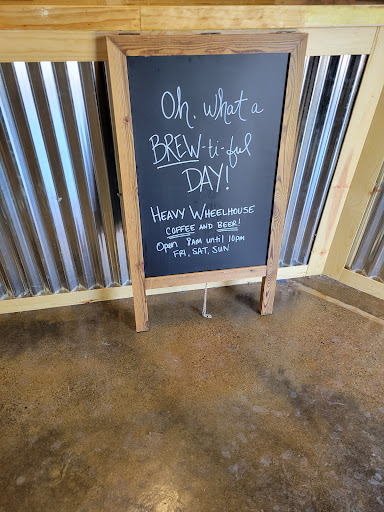 Oh, what a
BREW-ti-ful
DAY!
HEAVY WHEELHOUSE
COFFEE AND BEER!
Open 8AM until 10pm
FRI, SAT, SUN